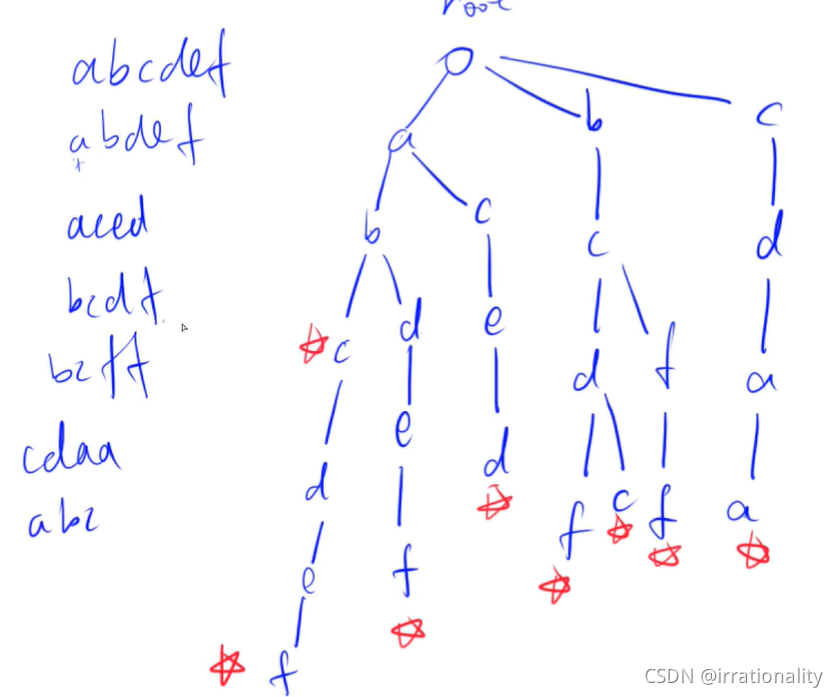 root
abcdef
abdef
aced
bcdf
bcff
cdaa
abc
a
b
c
b
c
c
d
c
d
e
d
f
a
d
e
d
f
c
f
a
e
f
f
CSDN @irrationality